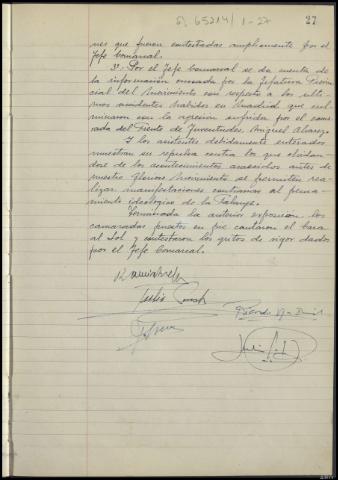 65214/1-27
27
nes que fueron contestadas ampliamente por el
Jefe Comarcal.
3º.- Por el Jefe Comarcal se da cuenta de
la información cursada por la Jefatura Provin-
cial del Movimiento con respecto a los últi-
mos accidentes habidos en Madrid que cul-
minaron con la agresión sufrida por el cama-
rada del Frente de Juventudes, Miguel Alvarez.
Y los asistentes debidamente enterados
muestran su repulsa contra los que olvidan-
dose de los acontecimientos acaecidos antes de
nuestro Glorioso Movimiento se permiten rea-
lizar manifestaciones contrarias al pensa-
miento ideológico de la Falange.
Terminada la anterior exposición, los
camaradas puestos en pie cantaron el Cara
al Sol y contestaron los gritos de rigor dados
por el Jefe Comarcal.